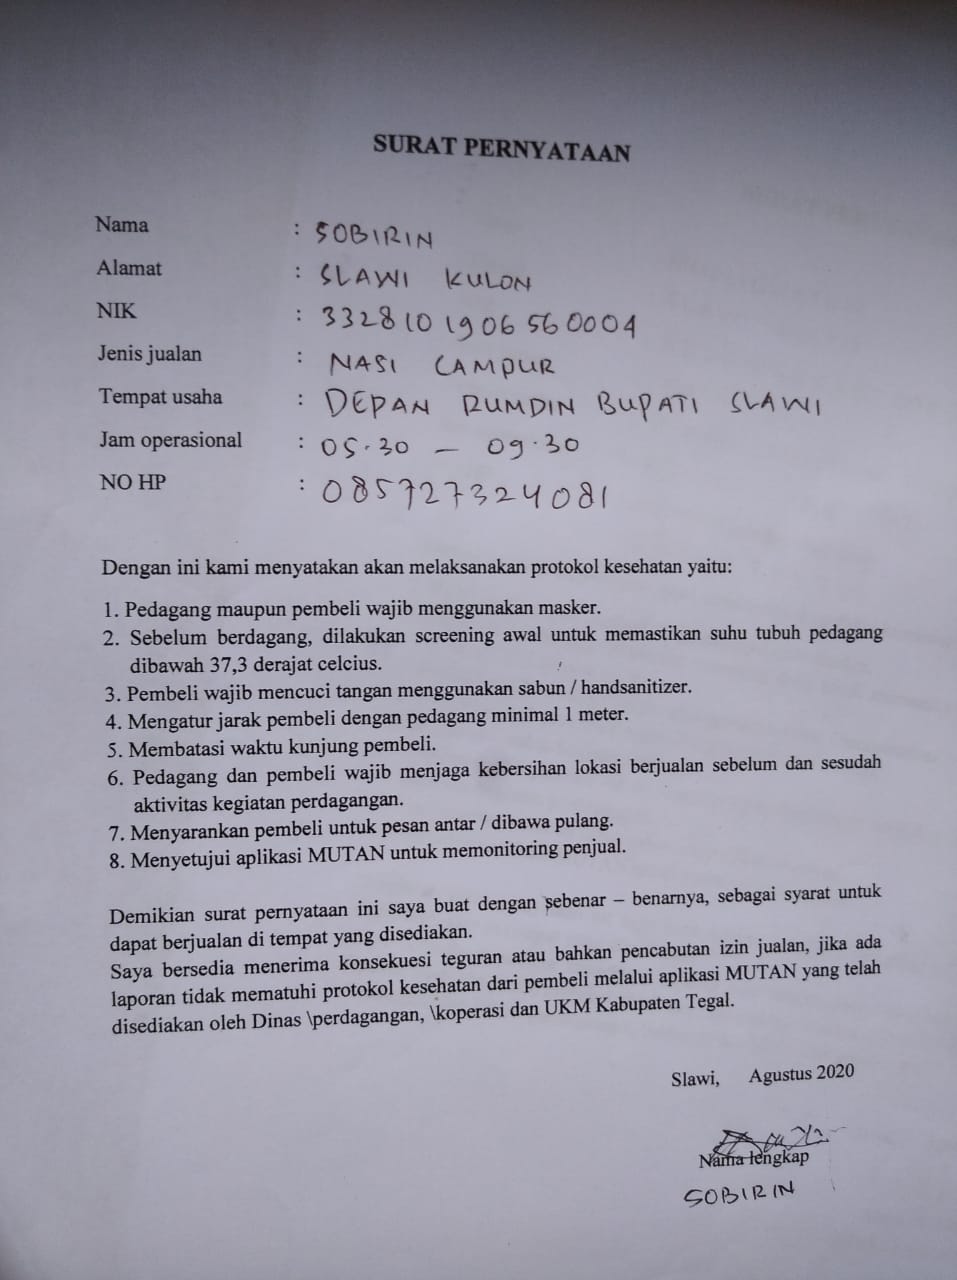 SURAT PERNYATAAN
Nama : SOBIRIN
Alamat : SLAWI KULON
NIK : 3328101906560004
Jenis jualan : NASI CAMPUR
Tempat usaha : DEPAN RUMDIN BUPATI SLAWI
Jam operasional : 05.30 – 09.30
NO HP : 085727324081
Dengan ini kami menyatakan akan melaksanakan protokol kesehatan yaitu:
1. Pedagang maupun pembeli wajib menggunakan masker.
2. Sebelum berdagang, dilakukan screening awal untuk memastikan suhu tubuh pedagang
dibawah 37,3 derajat celcius.
3. Pembeli wajib mencuci tangan menggunakan sabun / handsanitizer.
4. Mengatur jarak pembeli dengan pedagang minimal 1 meter.
5. Membatasi waktu kunjung pembeli.
6. Pedagang dan pembeli wajib menjaga kebersihan lokasi berjualan sebelum dan sesudah
aktivitas kegiatan perdagangan.
7. Menyarankan pembeli untuk pesan antar / dibawa pulang.
8. Menyetujui aplikasi MUTAN untuk memonitoring penjual.
Demikian surat pernyataan ini saya buat dengan sebenar – benarnya, sebagai syarat untuk
dapat berjualan di tempat yang disediakan.
Saya bersedia menerima konsekuesi teguran atau bahkan pencabutan izin jualan, jika ada
laporan tidak mematuhi protokol kesehatan dari pembeli melalui aplikasi MUTAN yang telah
disediakan oleh Dinas \perdagangan, \koperasi dan UKM Kabupaten Tegal.
Slawi, Agustus 2020
Nama lengkap
SOBIRIN